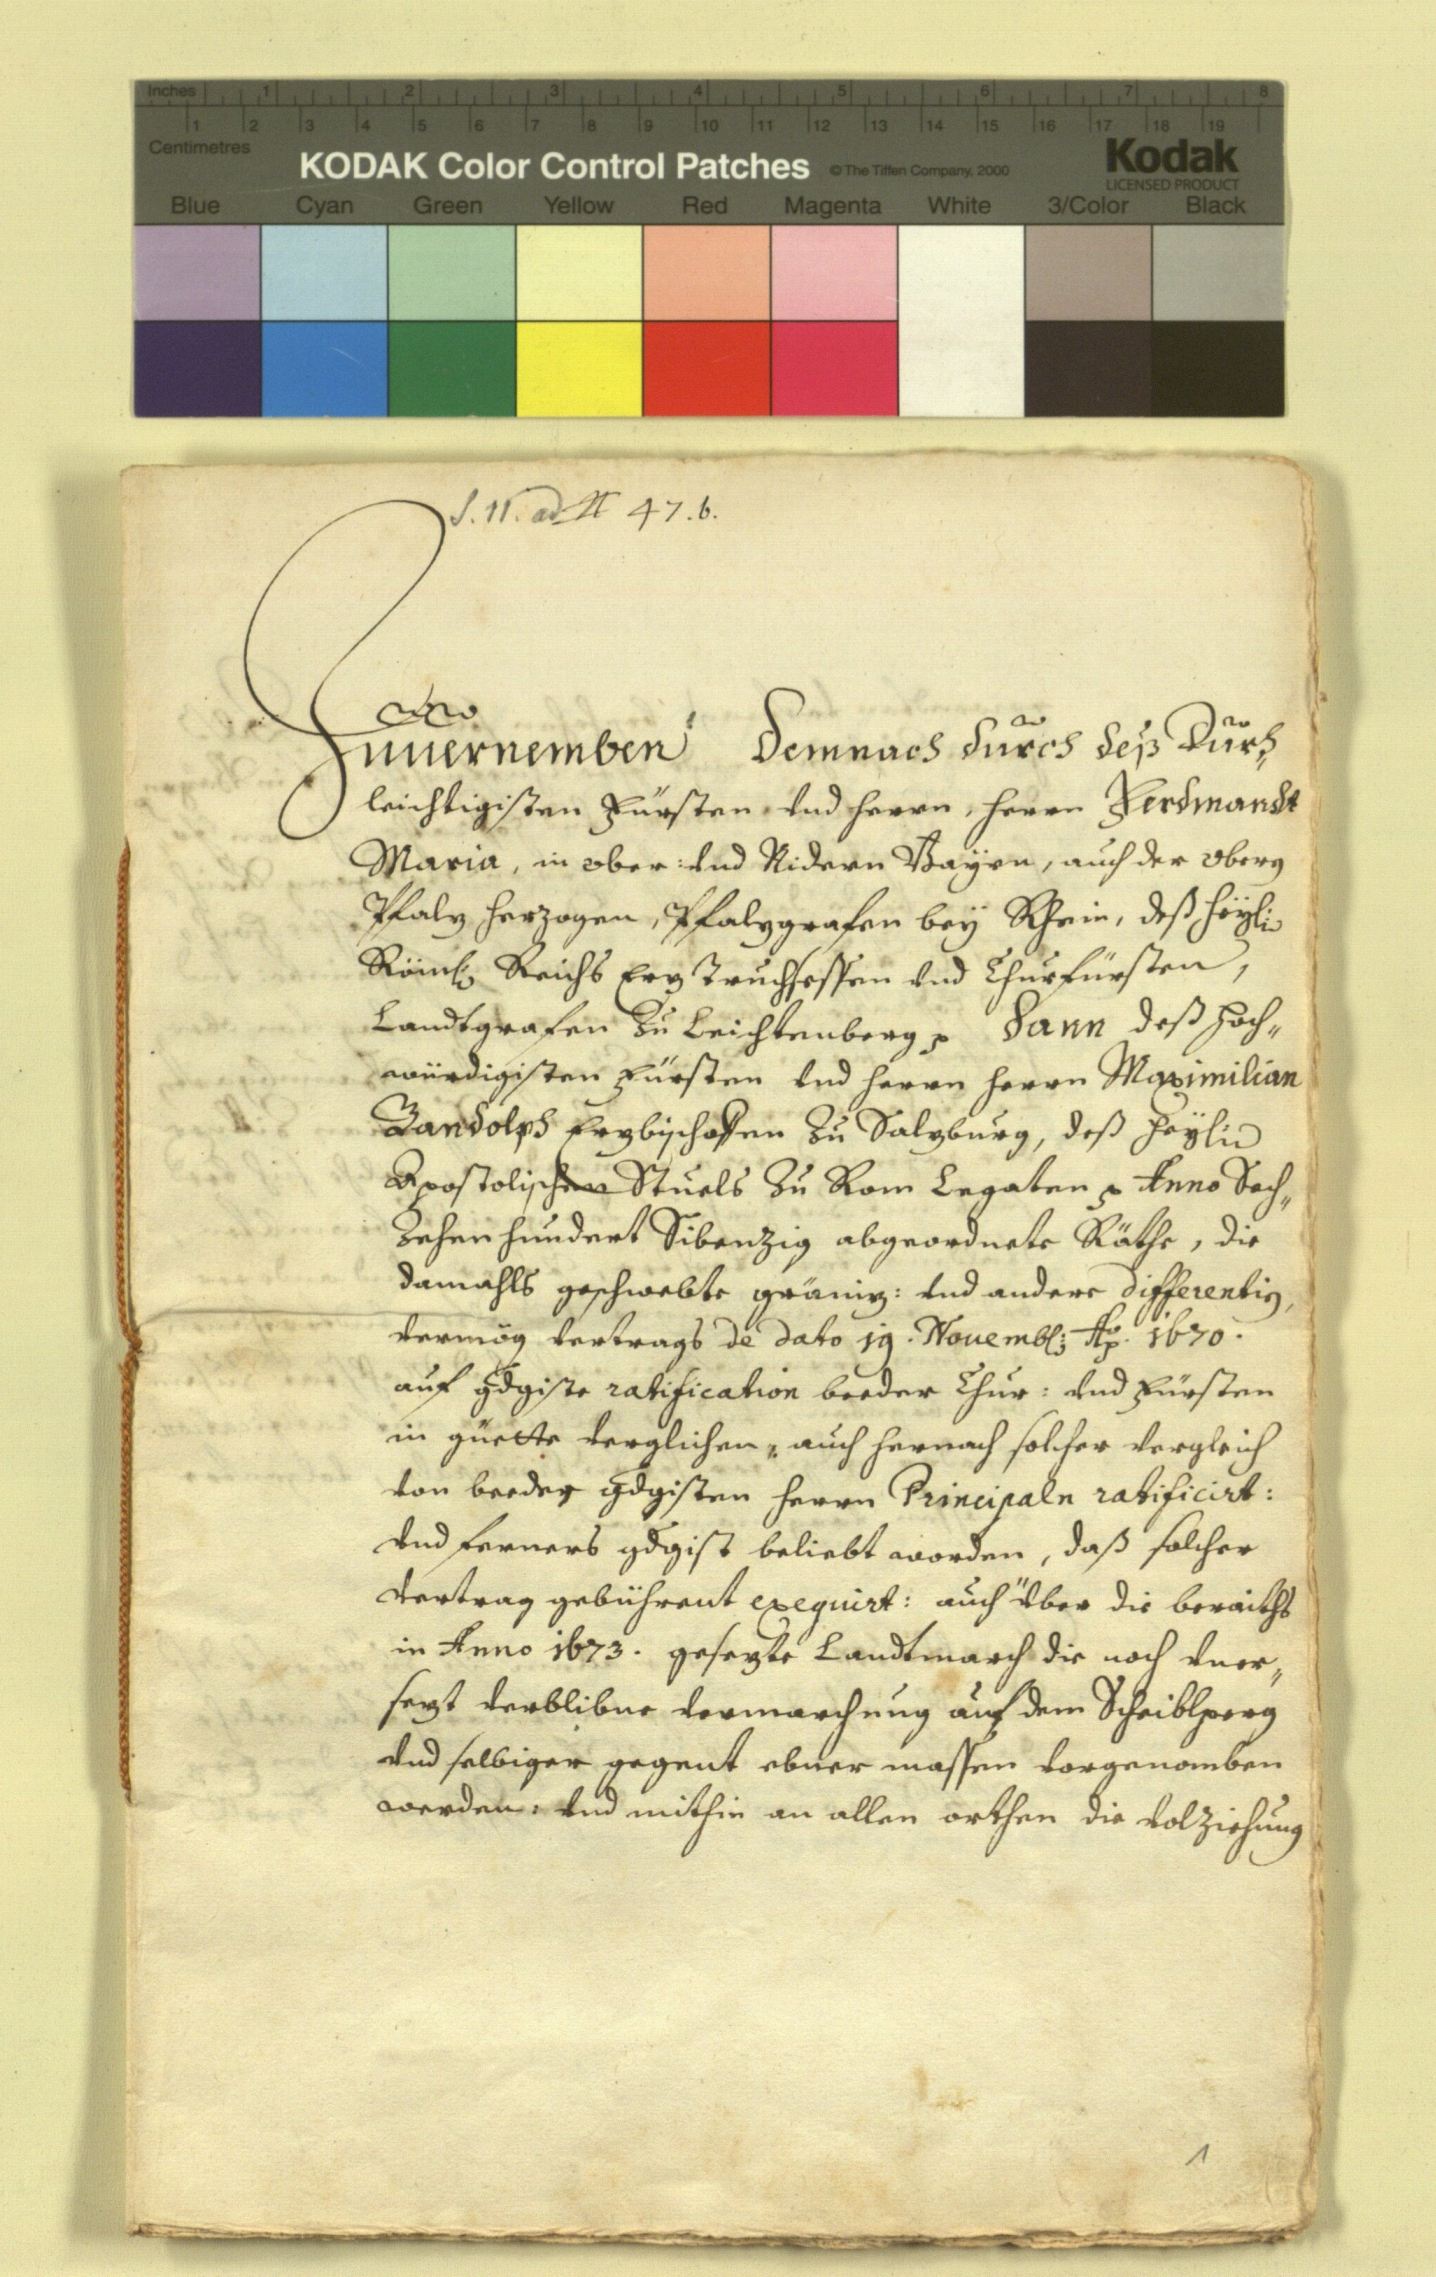 Inches 1 2 3 4 5 6 7 8
1 2 3 4 5 6 7 8 9 10 11 12 13 14 15 16 17 18 19
Centimetres
KODAK Color Control Patches © The Tiffen Company, 2000 Kodak
LICENSED PRODUCT
Blue Cyan Green Yellow Red Magenta White 3/Color Black
47.b.
Zuuernemben Demnach durch deß Durch„
leichtigisten Fürsten vnd herrn, herrn Ferdinandt
Maria, in ober: vnd Nidern Bayrn, auch der obern
Pfalz herzogen, Pfalzgrafen bey Rhein, deß heyl:
Röm: Reichs Erz Truchsessen vnd Churfürsten,
Landtgrafen zu Leichtenberg p. Dann deß Hoch„
würdigisten Fürsten vnd herrn herrn Maximilian
Gandolph Erzbischoffen zu Salzburg, deß heyl:
Apostolischen Stuels zu Rom Legaten p Anno Sech„
zehenhundert Sibenzig abgeordnete Räthe, die
damahls geschwebte gräniz: vnd andere differentien,
vermög vertrags de dato 19. Nouemb: Ao. 1670.
auf gdgiste ratification beeder Chur: vnd Fürsten
in güette verglichen, auch hernach solcher vergleich
von beeden gdgisten herrn Principaln ratificirt:
vnd ferners gdgist beliebt worden, daß solcher
vertrag gebührent exequirt: auch über die beraiths
in Anno 1673. gesezte Landtmarch die noch vner„
sezt verblibne vermarchung auf dem Scheiblperg
vnd selbiger gegent ebner massen vorgenomben
werden: vnd mithin an allen orthen die volziehung
1